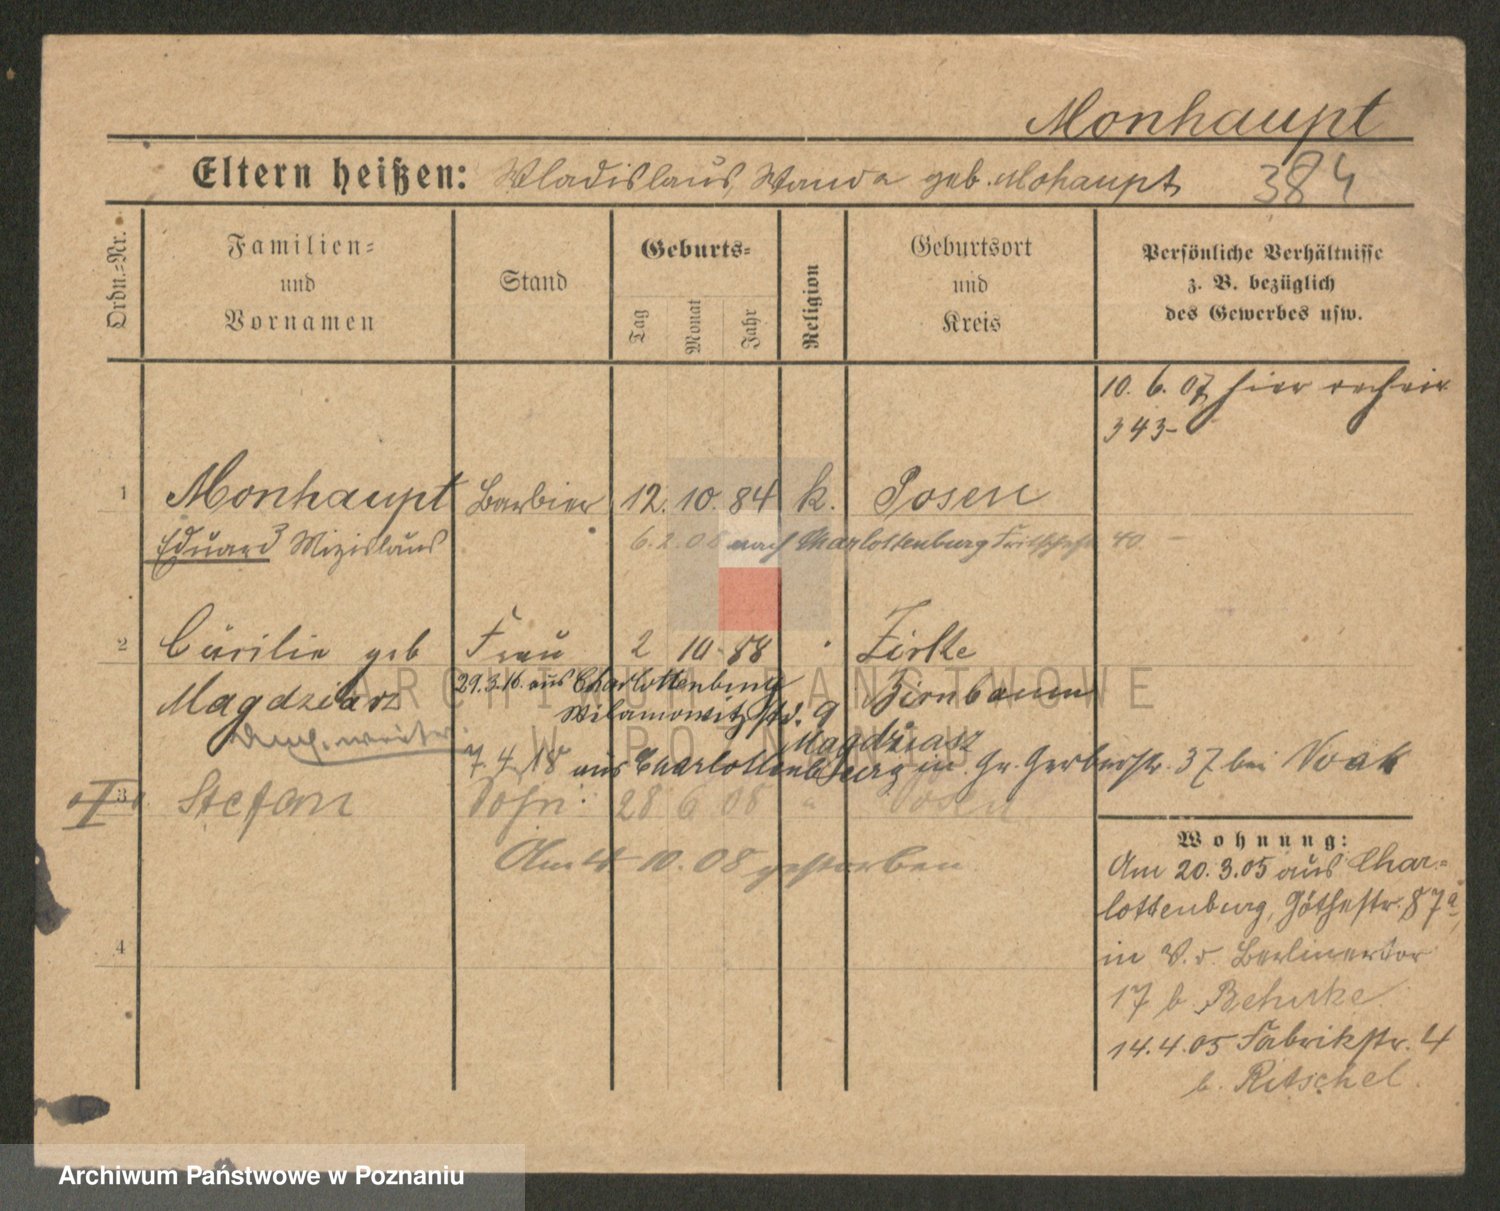 Monhaupt
Eltern heißen: Wladislaus, Wanda geb. Mohaupt 384
Ordn.=Nr.
Familien=
und
Vornamen
Stand
Geburts=
Tag
Monat
Jahr
Religion
Geburtsort
und
Kreis
Persönliche Verhältnisse
z. B. bezüglich
des Gewerbes usw.
10. 6. 07 hier
343-
1 Monhaupt Barbier 12. 10. 84 k. Posen
Eduard Mizislaus 6. 2. 08 nach Charlottenburg 40
2 Cäcilie geb Frau 2 10. 88 " Zirke
Magdziarz 29.3.16. aus Charlottenburg Birnbaum
Wilamowitzstr. 9
Magdziarz
7. 4. 18 aus Charlottenburg in Gr. Gerberstr. 37 bei Noak
II 3 Stefan Sohn 28 6 08 " Posen
Am 4 10. 08 gestorben
4
Wohnung:
Am 20. 3. 05 aus Char=
lottenburg, Göthestr. 87a
in V. d. Berlinertor
17 b.
14. 4. 05 Fabrikstr. 4
b. Ritschel.
ARCHIWUM PAŃSTWOWE
W POZNANIU
Archiwum Państwowe w Poznaniu